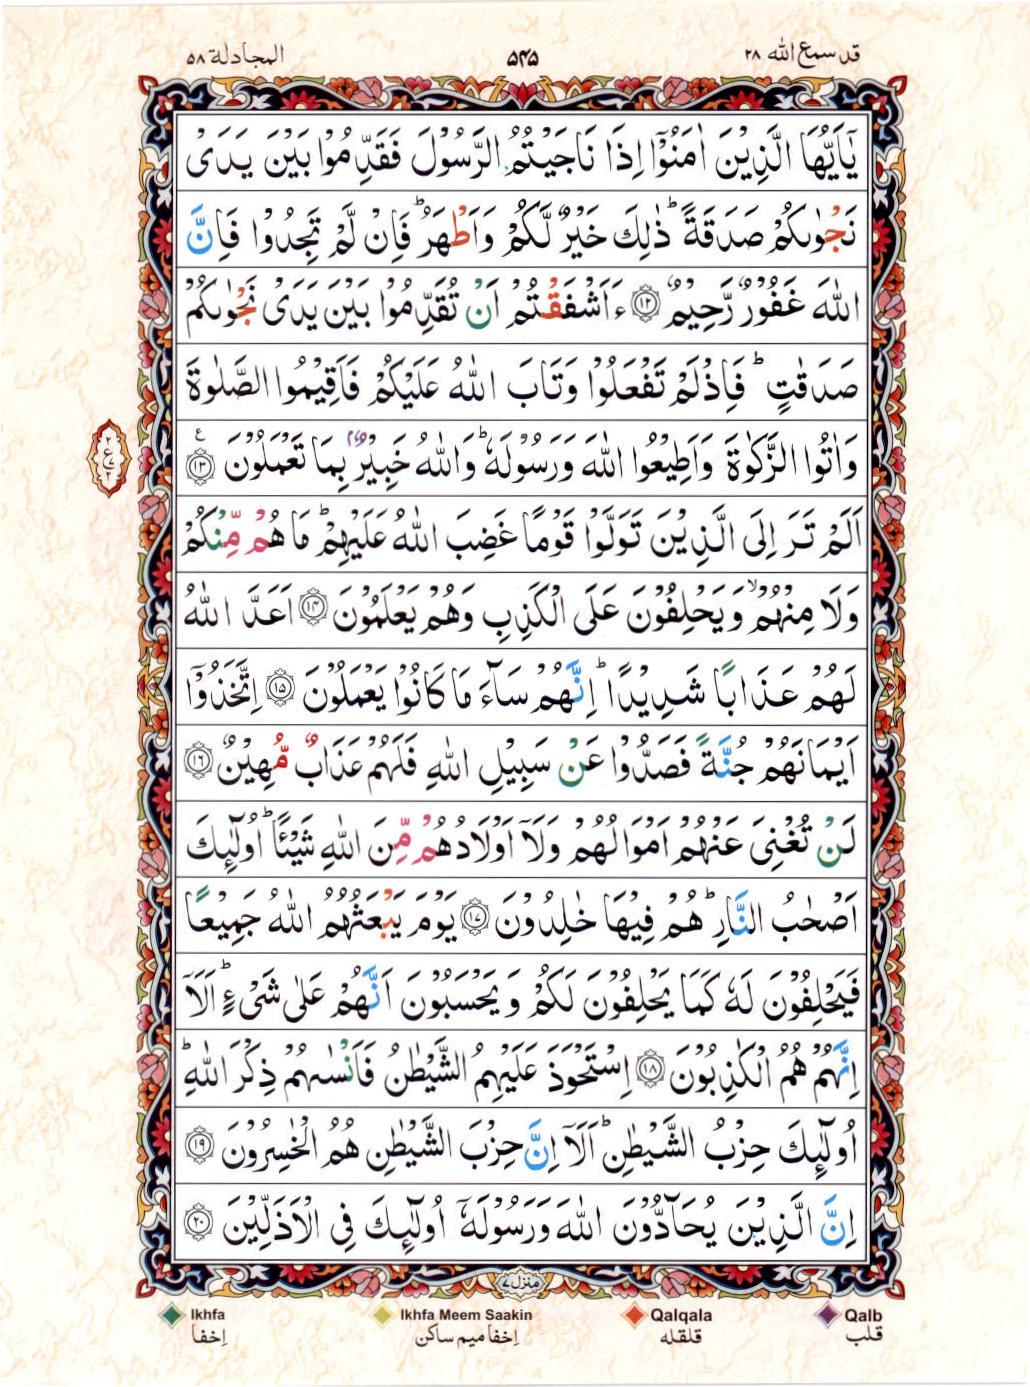 قد سمع الله ٢٨
٥٤٥
المجادلة ٥٨
يٰۤاَيُّهَا الَّذِيْنَ اٰمَنُوْۤا اِذَا نَاجَيْتُمُ الرَّسُوْلَ فَقَدِّمُوْا بَيْنَ يَدَىْ
نَجْوٰىكُمْ صَدَقَةً ؕ ذٰلِكَ خَيْرٌ لَّكُمْ وَاَطْهَرُ ؕ فَاِنْ لَّمْ تَجِدُوْا فَاِنَّ
اللّٰهَ غَفُوْرٌ رَّحِيْمٌ ﴿١٢﴾ ءَاَشْفَقْتُمْ اَنْ تُقَدِّمُوْا بَيْنَ يَدَىْ نَجْوٰىكُمْ
صَدَقٰتٍ ؕ فَاِذْلَمْ تَفْعَلُوْا وَتَابَ اللّٰهُ عَلَيْكُمْ فَاَقِيْمُوا الصَّلٰوةَ
وَاٰتُوا الزَّكٰوةَ وَاَطِيْعُوا اللّٰهَ وَرَسُوْلَهٗ ؕ وَاللّٰهُ خَبِيْرٌۢ بِمَا تَعْمَلُوْنَ ﴿١٣﴾ ع
اَلَمْ تَرَ اِلَى الَّذِيْنَ تَوَلَّوْا قَوْمًا غَضِبَ اللّٰهُ عَلَيْهِمْ ؕ مَا هُمْ مِّنْكُمْ
وَلَا مِنْهُمْ ۙ وَيَحْلِفُوْنَ عَلَى الْكَذِبِ وَهُمْ يَعْلَمُوْنَ ﴿١٤﴾ اَعَدَّ اللّٰهُ
لَهُمْ عَذَابًا شَدِيْدًا ؕ اِنَّهُمْ سَآءَ مَا كَانُوْا يَعْمَلُوْنَ ﴿١٥﴾ اِتَّخَذُوْۤا
اَيْمَانَهُمْ جُنَّةً فَصَدُّوْا عَنْ سَبِيْلِ اللّٰهِ فَلَهُمْ عَذَابٌ مُّهِيْنٌ ﴿١٦﴾
لَنْ تُغْنِىَ عَنْهُمْ اَمْوَالُهُمْ وَلَاۤ اَوْلَادُهُمْ مِّنَ اللّٰهِ شَيْئًا ؕ اُولٰٓئِكَ
اَصْحٰبُ النَّارِ ؕ هُمْ فِيْهَا خٰلِدُوْنَ ﴿١٧﴾ يَوْمَ يَبْعَثُهُمُ اللّٰهُ جَمِيْعًا
فَيَحْلِفُوْنَ لَهٗ كَمَا يَحْلِفُوْنَ لَكُمْ وَيَحْسَبُوْنَ اَنَّهُمْ عَلٰى شَىْءٍ ؕ اَلَاۤ
اِنَّهُمْ هُمُ الْكٰذِبُوْنَ ﴿١٨﴾ اِسْتَحْوَذَ عَلَيْهِمُ الشَّيْطٰنُ فَاَنْسٰىهُمْ ذِكْرَ اللّٰهِ ؕ
اُولٰٓئِكَ حِزْبُ الشَّيْطٰنِ ؕ اَلَاۤ اِنَّ حِزْبَ الشَّيْطٰنِ هُمُ الْخٰسِرُوْنَ ﴿١٩﴾
اِنَّ الَّذِيْنَ يُحَآدُّوْنَ اللّٰهَ وَرَسُوْلَهٗۤ اُولٰٓئِكَ فِى الْاَذَلِّيْنَ ﴿٢٠﴾
منزل ٧
Ikhfa Ikhfa Meem Saakin Qalqala Qalb
اِخفا اِخفا میم ساکن قلقله قلب